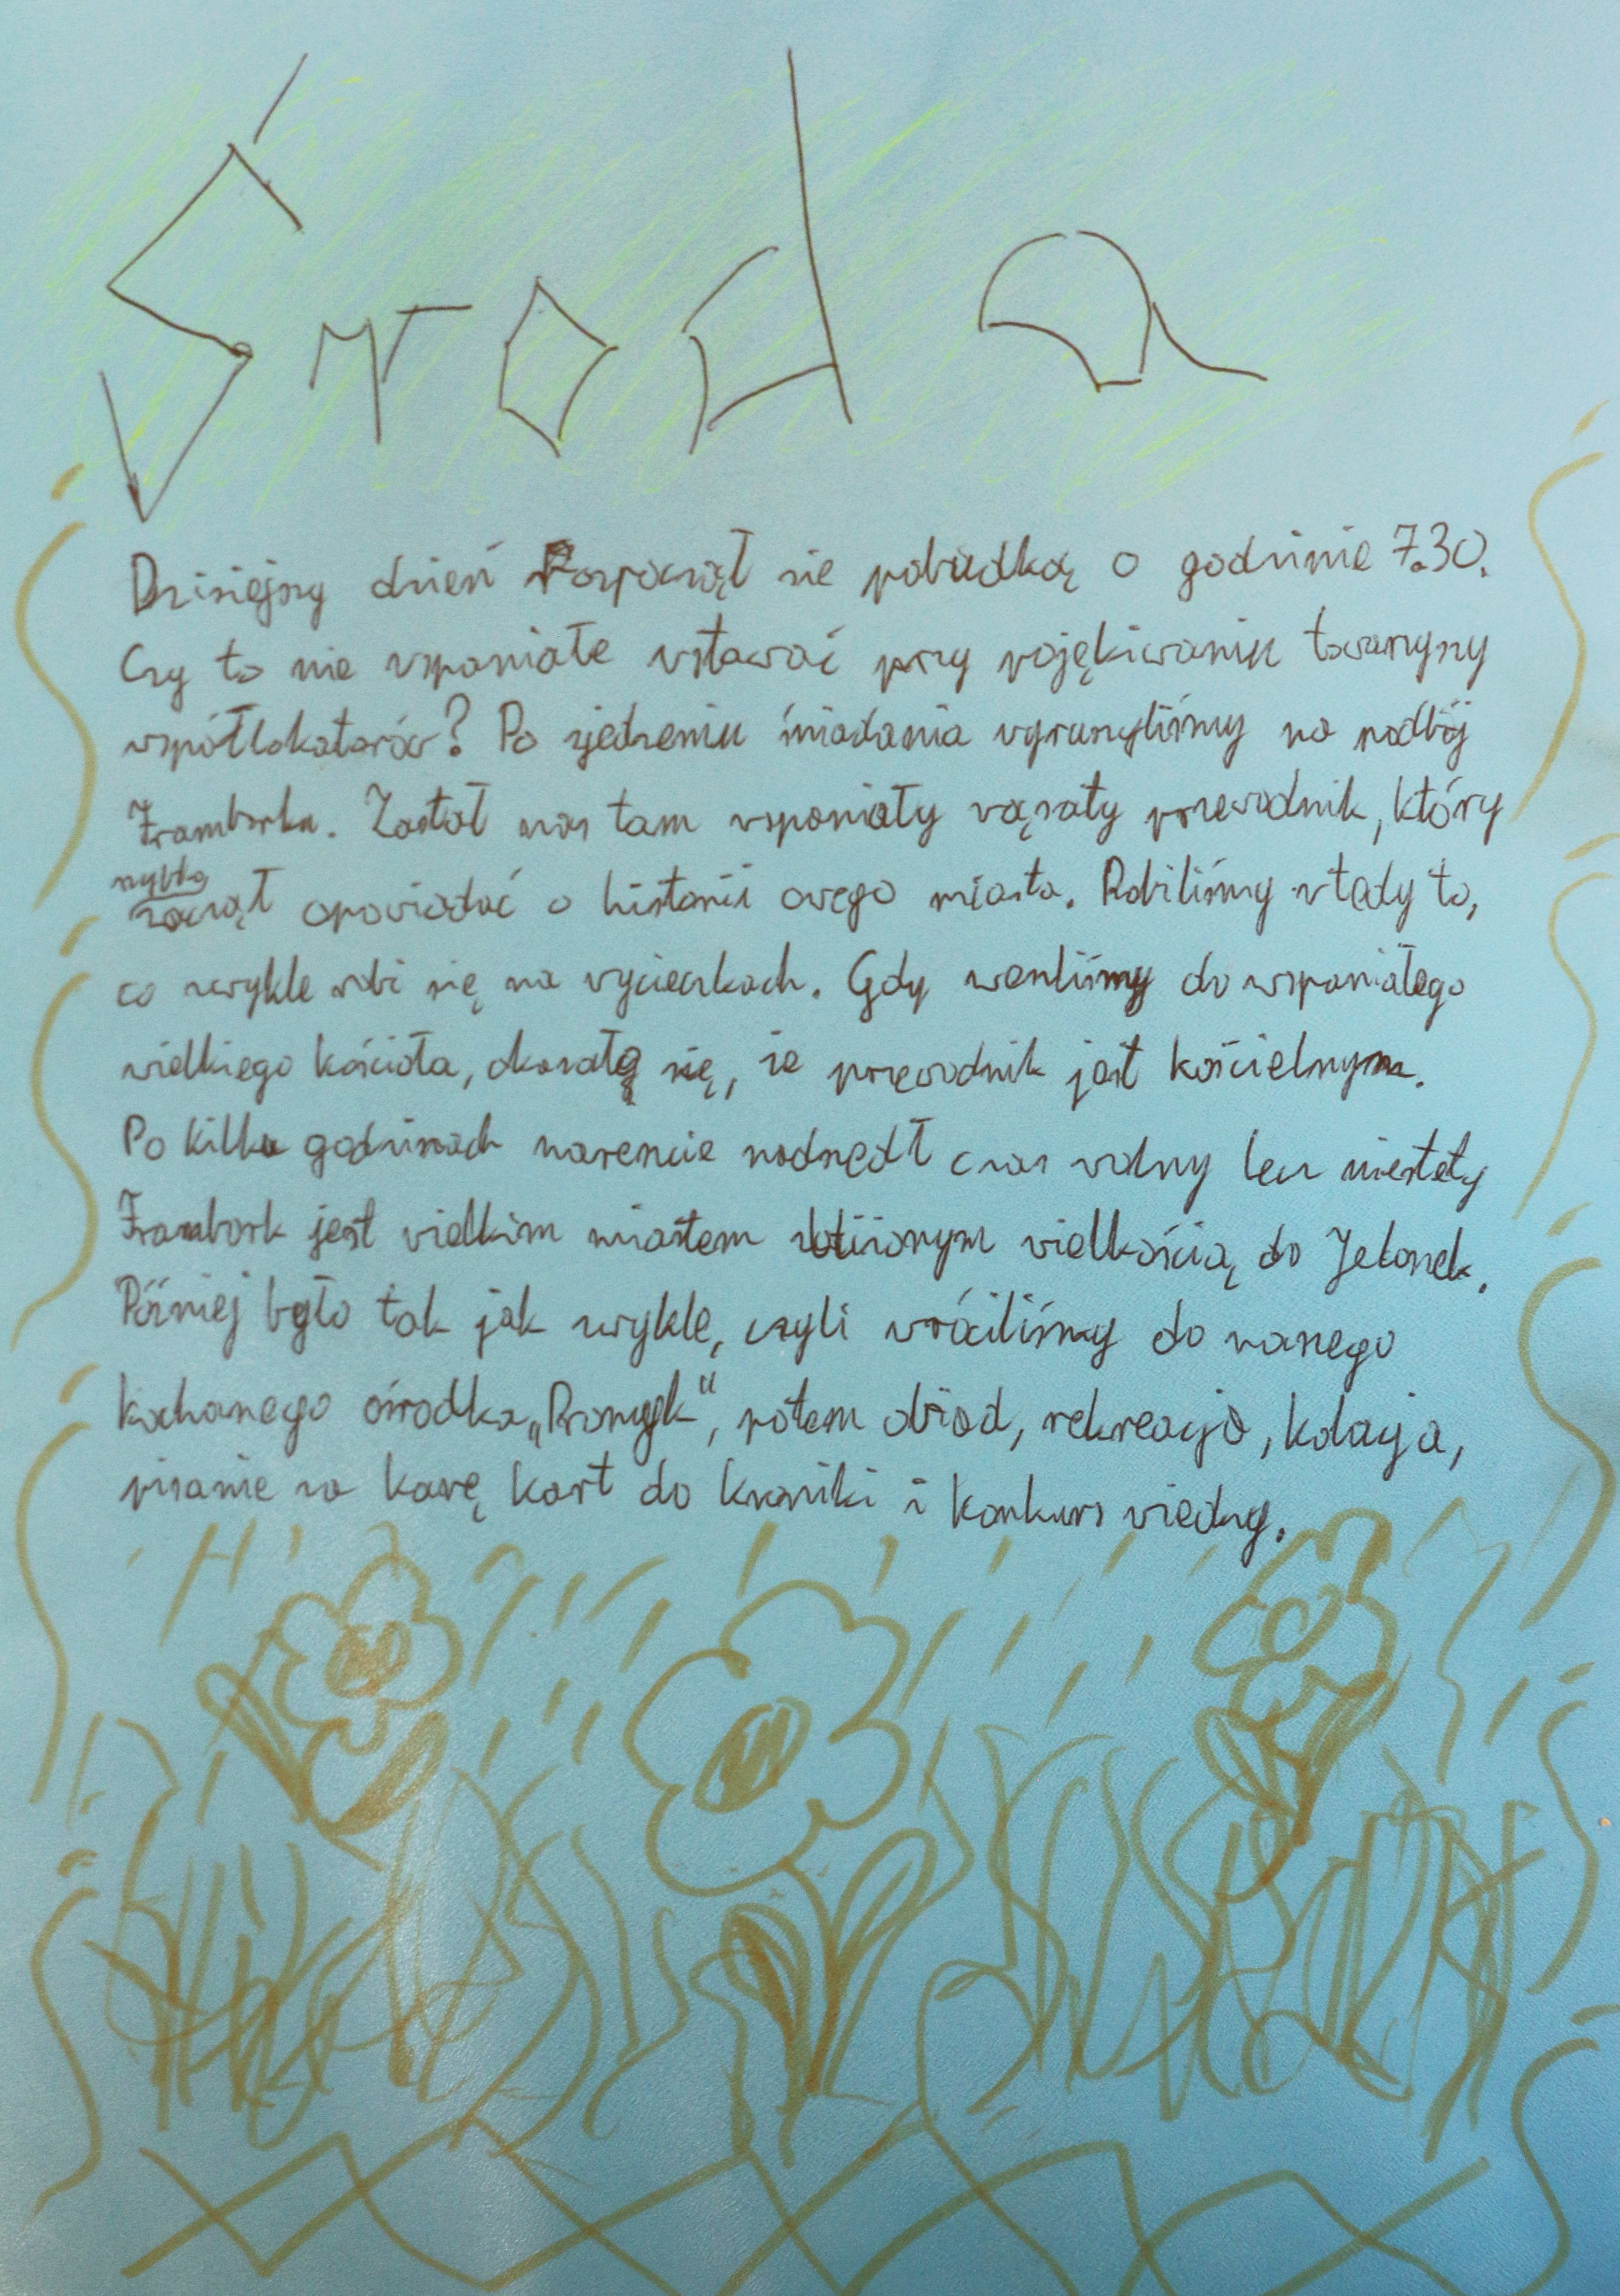 Środa
Dzisiejszy dzień Rozpoczął sie pobudką o godzinie 7.30.
Czy to nie wspaniałe wstawać przy pojękiwaniu towarzyszy
współlokatorów? Po zjedzeniu śniadania wyruszyliśmy na podbój
Fromborka. Zastał nas tam wspaniały wąsaty przewodnik, który
szybko
zaczął opowiadać o historii owego miasta. Robiliśmy wtedy to,
co zwykle robi się na wycieczkach. Gdy weszliśmy do wspaniałego
wielkiego kościoła, okazało się, że przewodnik jest kościelnym.
Po kilku godzinach nareszcie nadszedł czas wolny lecz niestety
Frambork jest wielkim miastem zbliżonym wielkością do Jelonek.
Później było tak jak zwykle, czyli wróciliśmy do naszego
kochanego ośrodka „Promyk", potem obiad, rekreacja, kolacja,
pisanie za karę kart do kroniki i konkurs wiedzy.